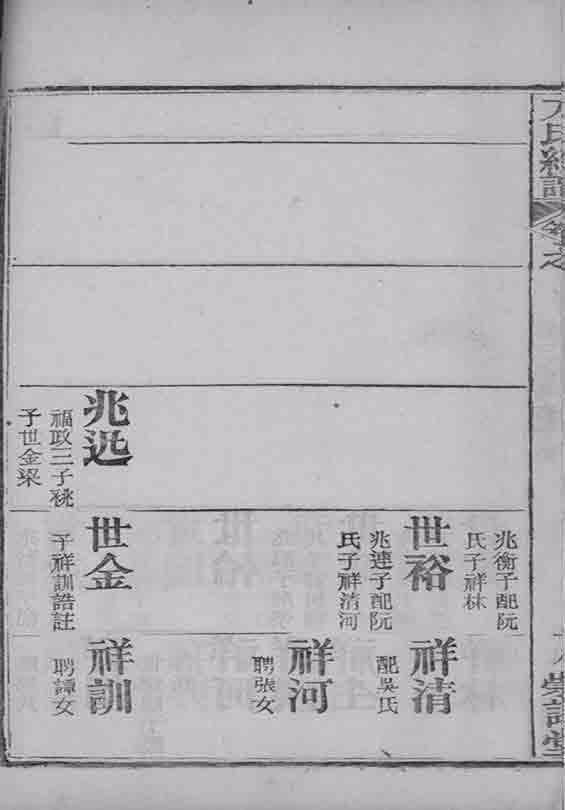 方氏總譜
卷之
兆远
福政三子祧
子世金梁
兆衡子配阮
氏子祥林
世裕
兆連子配阮
氏子祥清河
世金
子祥訓誥註
祥清
配吳氏
祥河
聘張女
祥訓
聘譚女